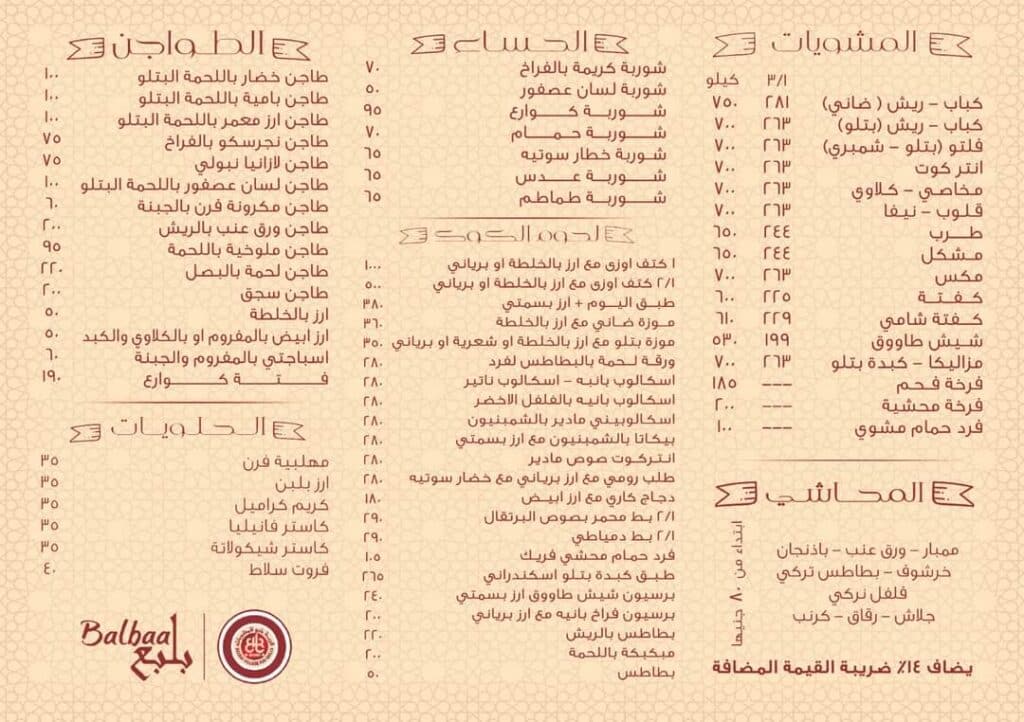 المشويات
٣/١ كيلو
كباب - ريش ( ضاني) ٢٨١ ٧٥٠
كباب - ريش (بتلو) ٢٦٣ ٧٠٠
فلتو (بتلو - شمبري) ٢٦٣ ٧٠٠
انتر كوت ٢٦٣ ٧٠٠
مخاصي - كلاوي ٢٦٣ ٧٠٠
قلوب - نيفا ٢٦٣ ٧٠٠
طرب ٢٤٤ ٦٥٠
مشكل ٢٤٤ ٦٥٠
مكس ٢٦٣ ٧٠٠
كفتة ٢٢٥ ٦٠٠
كفتة شامي ٢٢٩ ٦١٠
شيش طاووق ١٩٩ ٥٣٠
مزاليكا - كبدة بتلو ٢٦٣ ٧٠٠
فرخة فحم --- ١٨٥
فرخة محشية --- ٢٠٠
فرد حمام مشوي --- ١٠٠
المحاشي
ممبار - ورق عنب - باذنجان
خرشوف - بطاطس تركي
فلفل تركي
جلاش - رقاق - كرنب
ابتداء من ٨٠ جنيها
يضاف ١٤٪ ضريبة القيمة المضافة
الحساء
شوربة كريمة بالفراخ ٧٠
شوربة لسان عصفور ٥٠
شوربة كوارع ٩٥
شوربة حمام ٧٠
شوربة خطار سوتيه ٦٥
شوربة عدس ٦٥
شوربة طماطم ٦٥
لحوم الكوك
١ كتف اوزى مع ارز بالخلطة او برياني ١٠٠٠
٢/١ كتف اوزى مع ارز بالخلطة او برياني ٥٠٠
طبق اليوم + ارز بسمتي ٣٨٠
موزة ضاني مع ارز بالخلطة ٣٦٠
موزة بتلو مع ارز بالخلطة او شعرية او برياني ٣٥٠
ورقة لحمة بالبطاطس لفرد ٢٨٠
اسكالوب بانيه - اسكالوب ناتير ٢٨٠
اسكالوب بانيه بالفلفل الاخضر ٢٨٠
اسكالوبيني مادير بالشمبنيون ٢٨٠
بيكاتا بالشمبنيون مع ارز بسمتي ٢٨٠
انتركوت صوص مادير ٢٨٠
طلب رومي مع ارز برياني مع خضار سوتيه ٢٨٠
دجاج كاري مع ارز ابيض ١٨٠
٢/١ بط محمر بصوص البرتقال ٢٩٠
٢/١ بط دمياطي ٢٩٠
فرد حمام محشي فريك ١٠٥
طبق كبدة بتلو اسكندراني ٢٦٥
برسيون شيش طاووق ارز بسمتي ٢٤٠
برسيون فراخ بانيه مع ارز برياني ٢٠٠
بطاطس بالريش ٢٢٠
مبكبكة باللحمة ٢٠٠
بطاطس ٥٠
الطواجن
طاجن خضار باللحمة البتلو ١٠٠
طاجن بامية باللحمة البتلو ١٠٠
طاجن ارز معمر باللحمة البتلو ١٠٠
طاجن نجرسكو بالفراخ ٧٥
طاجن لازانيا نبولي ٧٥
طاجن لسان عصفور باللحمة البتلو ١٠٠
طاجن مكرونة فرن بالجبنة ٦٠
طاجن ورق عنب بالريش ٢٠٠
طاجن ملوخية باللحمة ٩٥
طاجن لحمة بالبصل ٢٢٠
طاجن سجق ٢٠٠
ارز بالخلطة ٥٠
ارز ابيض بالمفروم او بالكلاوي والكبد ٥٠
اسباجتي بالمفروم والجبنة ٦٠
فتة كوارع ١٩٠
الحلويات
مهلبية فرن ٣٥
ارز بلبن ٣٥
كريم كراميل ٣٥
كاستر فانيليا ٣٥
كاستر شيكولاتة ٣٥
فروت سلاط ٤٠
Balbaa
بلبع